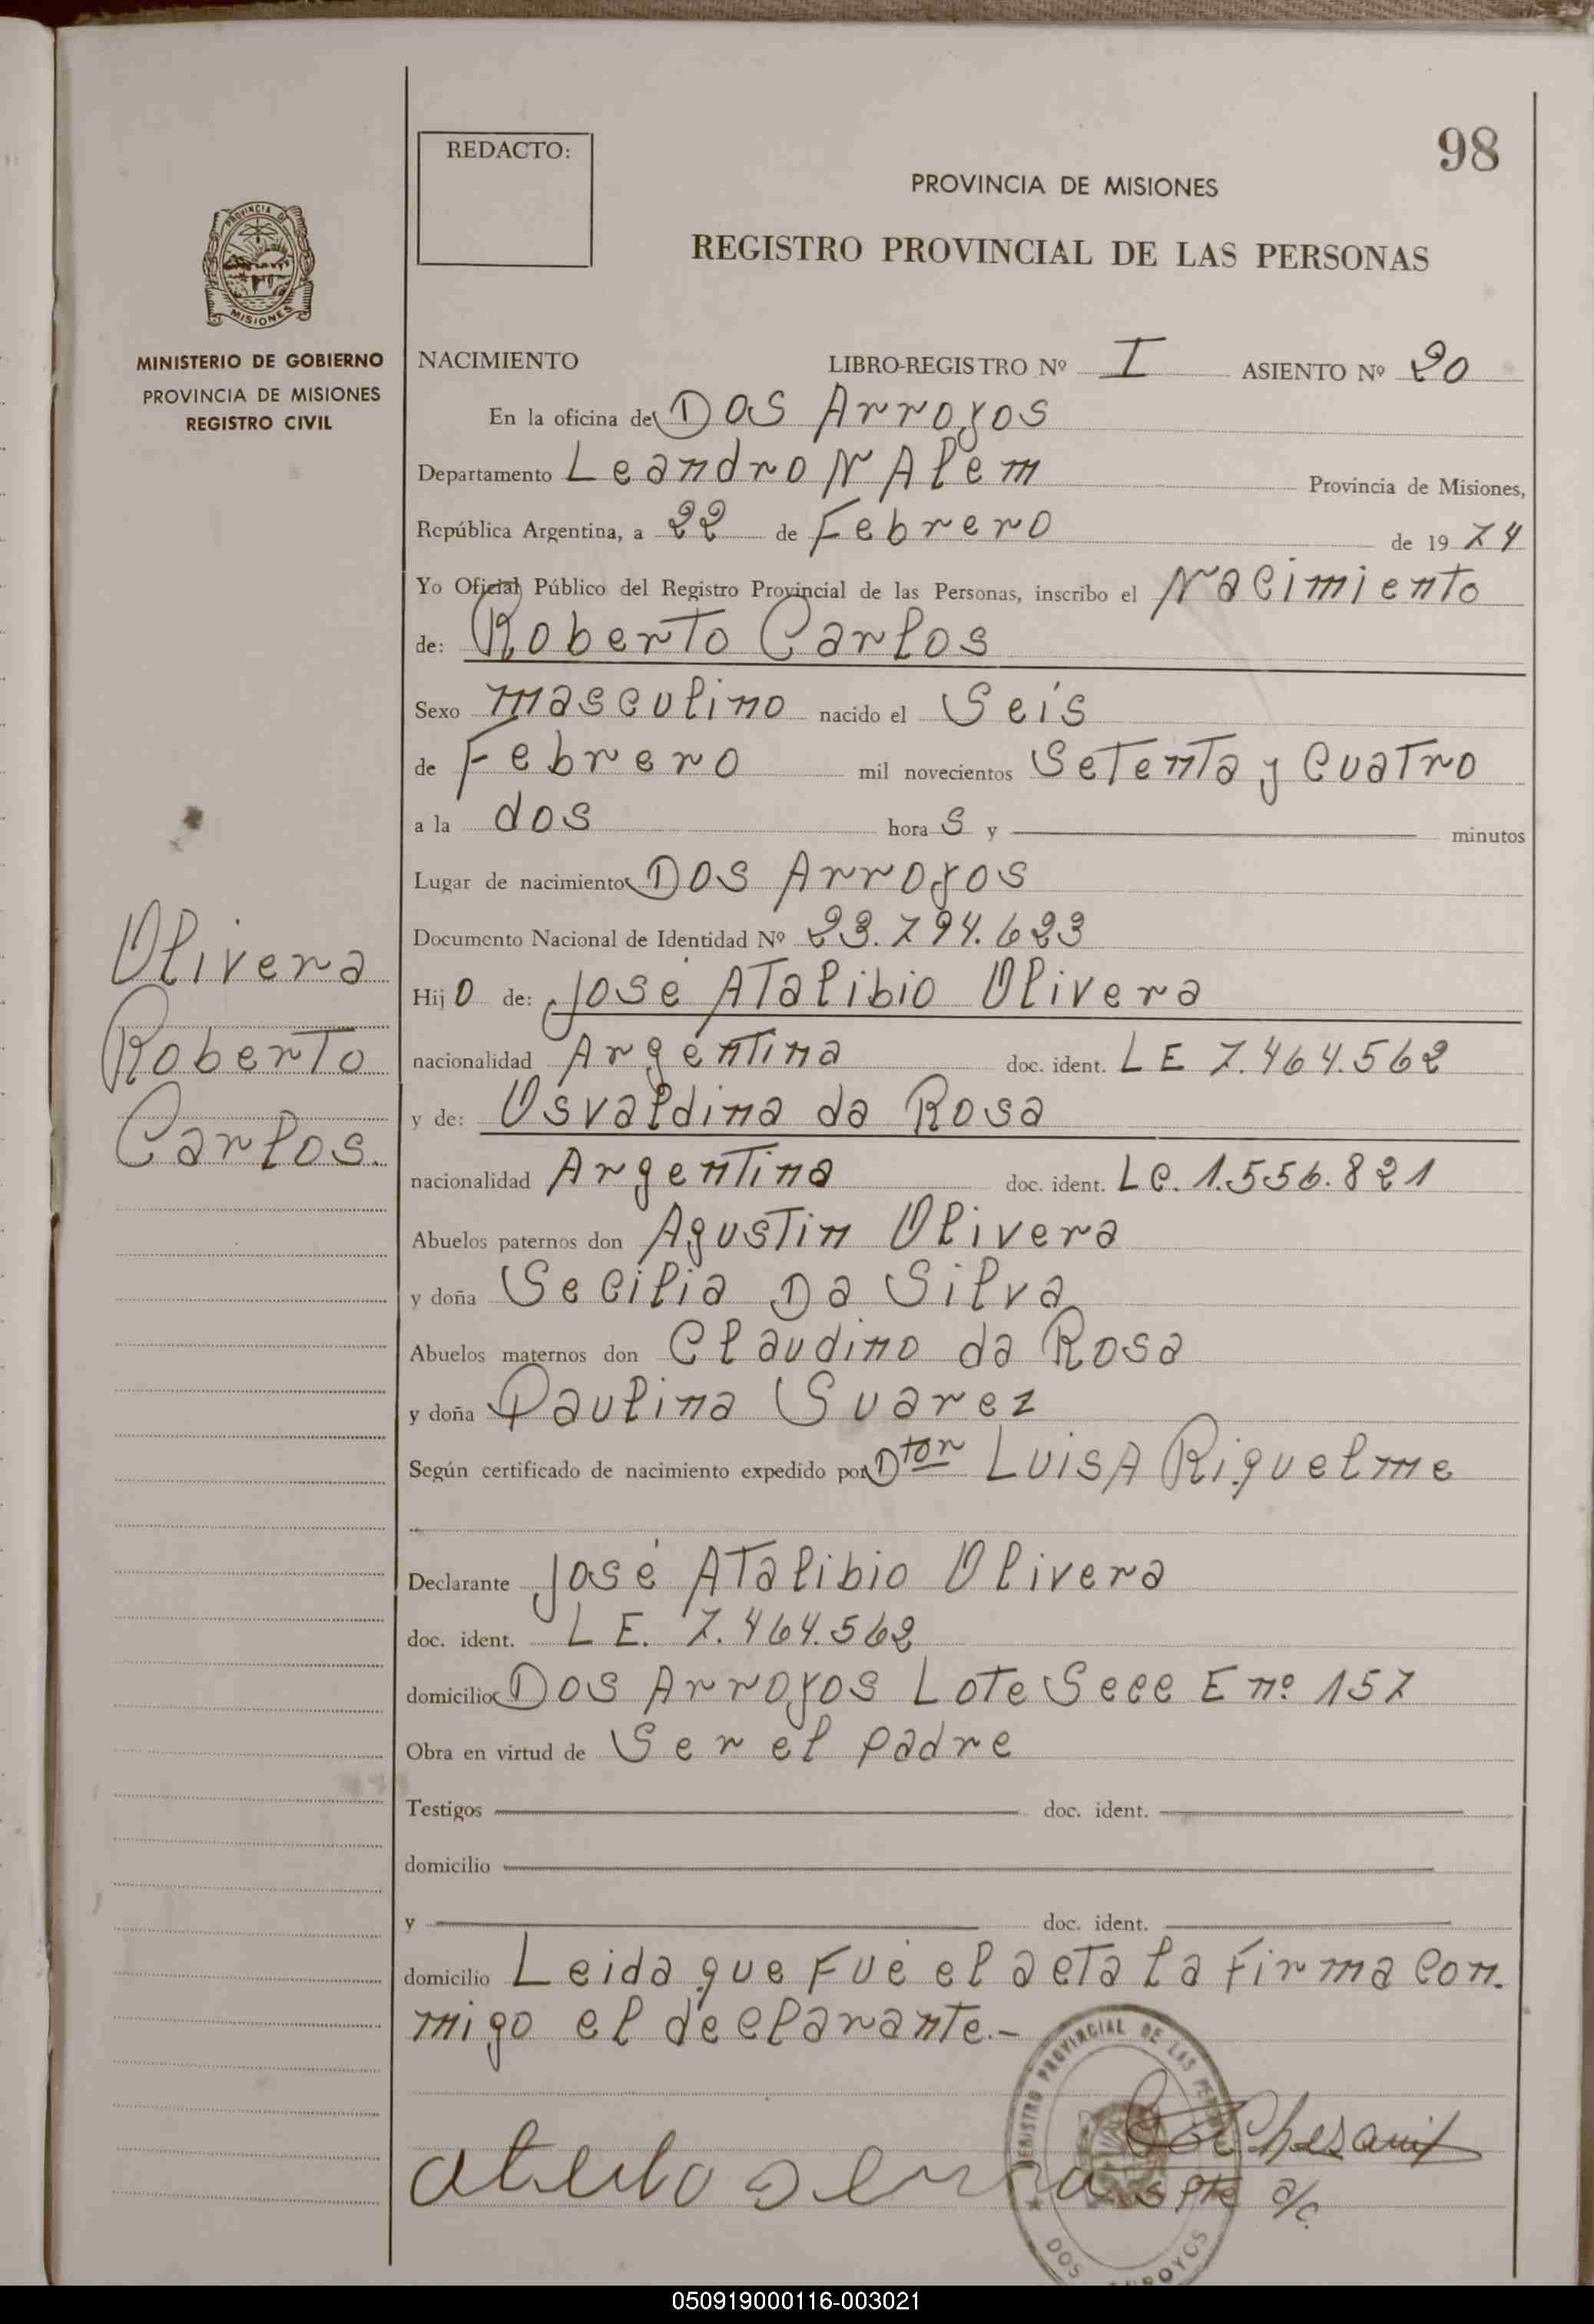 98
REDACTO:
PROVINCIA DE MISIONES
REGISTRO PROVINCIAL DE LAS PERSONAS
PROVINCIA DE
MISIONES
MINISTERIO DE GOBIERNO
PROVINCIA DE MISIONES
REGISTRO CIVIL
NACIMIENTO LIBRO-REGISTRO Nº I ASIENTO Nº 20
En la oficina de Dos Arroyos
Departamento Leandro N Alem Provincia de Misiones,
República Argentina, a 22 de Febrero de 19 74
Yo Oficial Público del Registro Provincial de las Personas, inscribo el Nacimiento
de: Roberto Carlos
Sexo masculino nacido el Seis
de Febrero mil novecientos Setenta y Cuatro
a la dos hora s y minutos
Lugar de nacimiento Dos Arroyos
Documento Nacional de Identidad Nº 23.794.623
Hij o de: José Atalibio Olivera
nacionalidad Argentina doc. ident. LE 7.464.562
y de: Osvaldina da Rosa
nacionalidad Argentina doc. ident. LC. 1.556.821
Abuelos paternos don Agustin Olivera
y doña Secilia Da Silva
Abuelos maternos don Claudino da Rosa
y doña Paulina Suarez
Según certificado de nacimiento expedido por Dtor Luisa Riquelme
Declarante José Atalibio Olivera
doc. ident. LE. 7.464.562
domicilio Dos Arroyos Lote Secc E nº 157
Obra en virtud de Ser el padre
Testigos doc. ident.
domicilio
y doc. ident.
domicilio Leida que Fué el acta la Firma con.
migo el declarante.-
Olivera
Roberto
Carlos.
REGISTRO PROVINCIAL DE LAS
DOS ARROYOS
a/c.
050919000116-003021